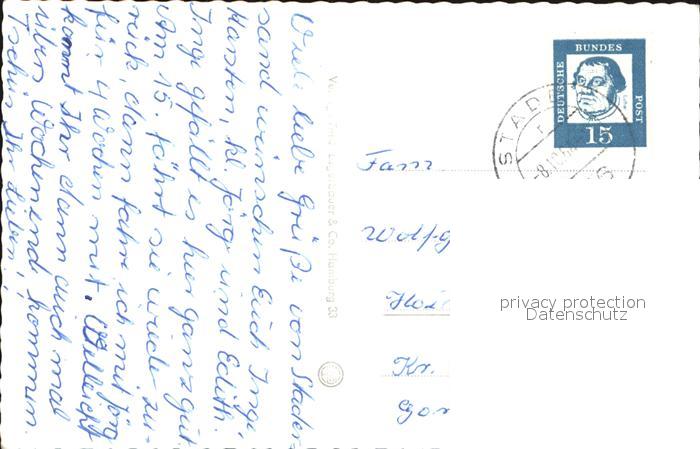 Viele liebe Grüße von Stader-
sand wünschen Euch Inge
Karsten, kl. Jörg und Edith.
Inge gefällt es hier ganz gut.
Am 15. fährt sie wieder zu-
rück, dann fahre ich mit Jörg
für 4 Wochen mit. Vielleicht
kommt Ihr dann auch mal
übers Wochenend kommen.
Tschüs Ihr Lieben!
& Co., Hamburg 33
DEUTSCHE
BUNDES
POST
15
STADE
Fam
Wolfg
Hol
Kr.
privacy protection
Datenschutz